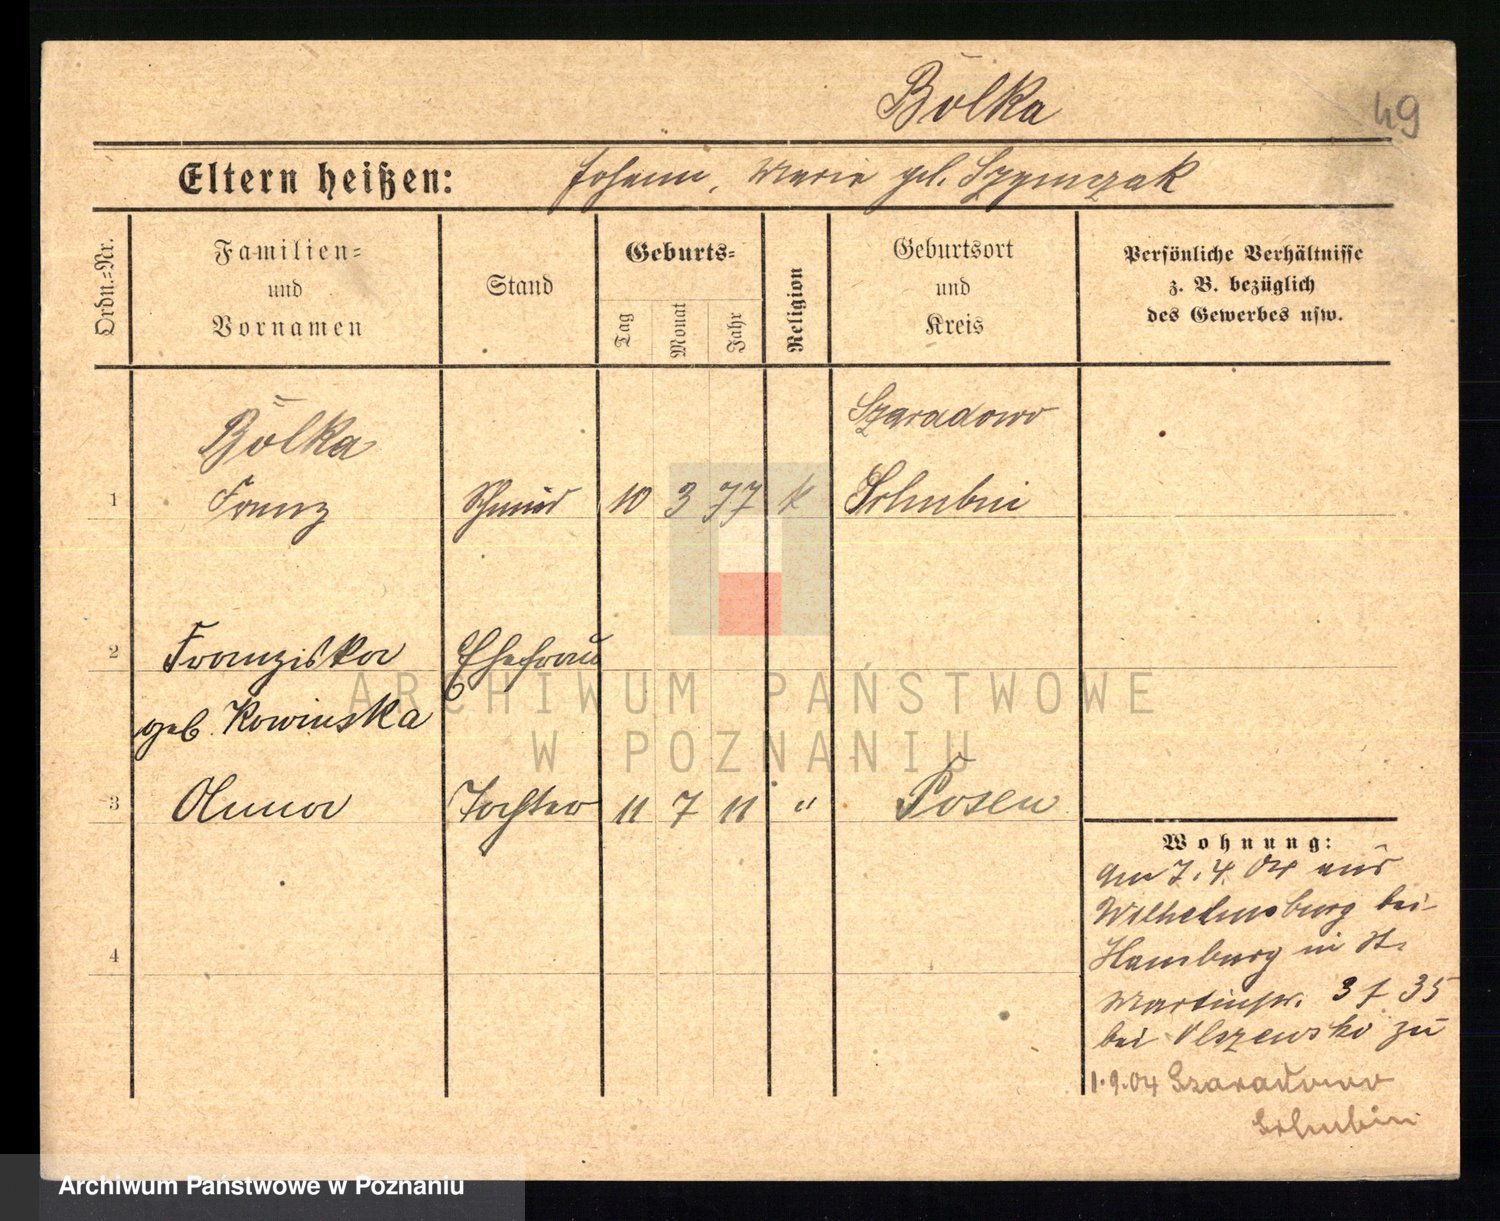 Bölka
49
Eltern heißen: Johann, Marie geb. Szymczak
Ordn.-Nr.
Familien-
und
Vornamen
Stand
Geburts-
Tag
Monat
Jahr
Religion
Geburtsort
und
Kreis
Persönliche Verhältnisse
z. B. bezüglich
des Gewerbes usw.
Bölka
Szaradowo
1 Franz Schmied 10 3 77 k Schubin
2 Franziska Ehefrau
geb. Kowinska
3 Tochter 11 7 11 " Posen
4
Wohnung:
Am 7.4.04 aus
Wilhelmsburg bei
Hamburg in St.
Martinstr. 35
bei Olszewski zu
1.9.04 Szaradowo
Schubin
ARCHIWUM PAŃSTWOWE
W POZNANIU
Archiwum Państwowe w Poznaniu